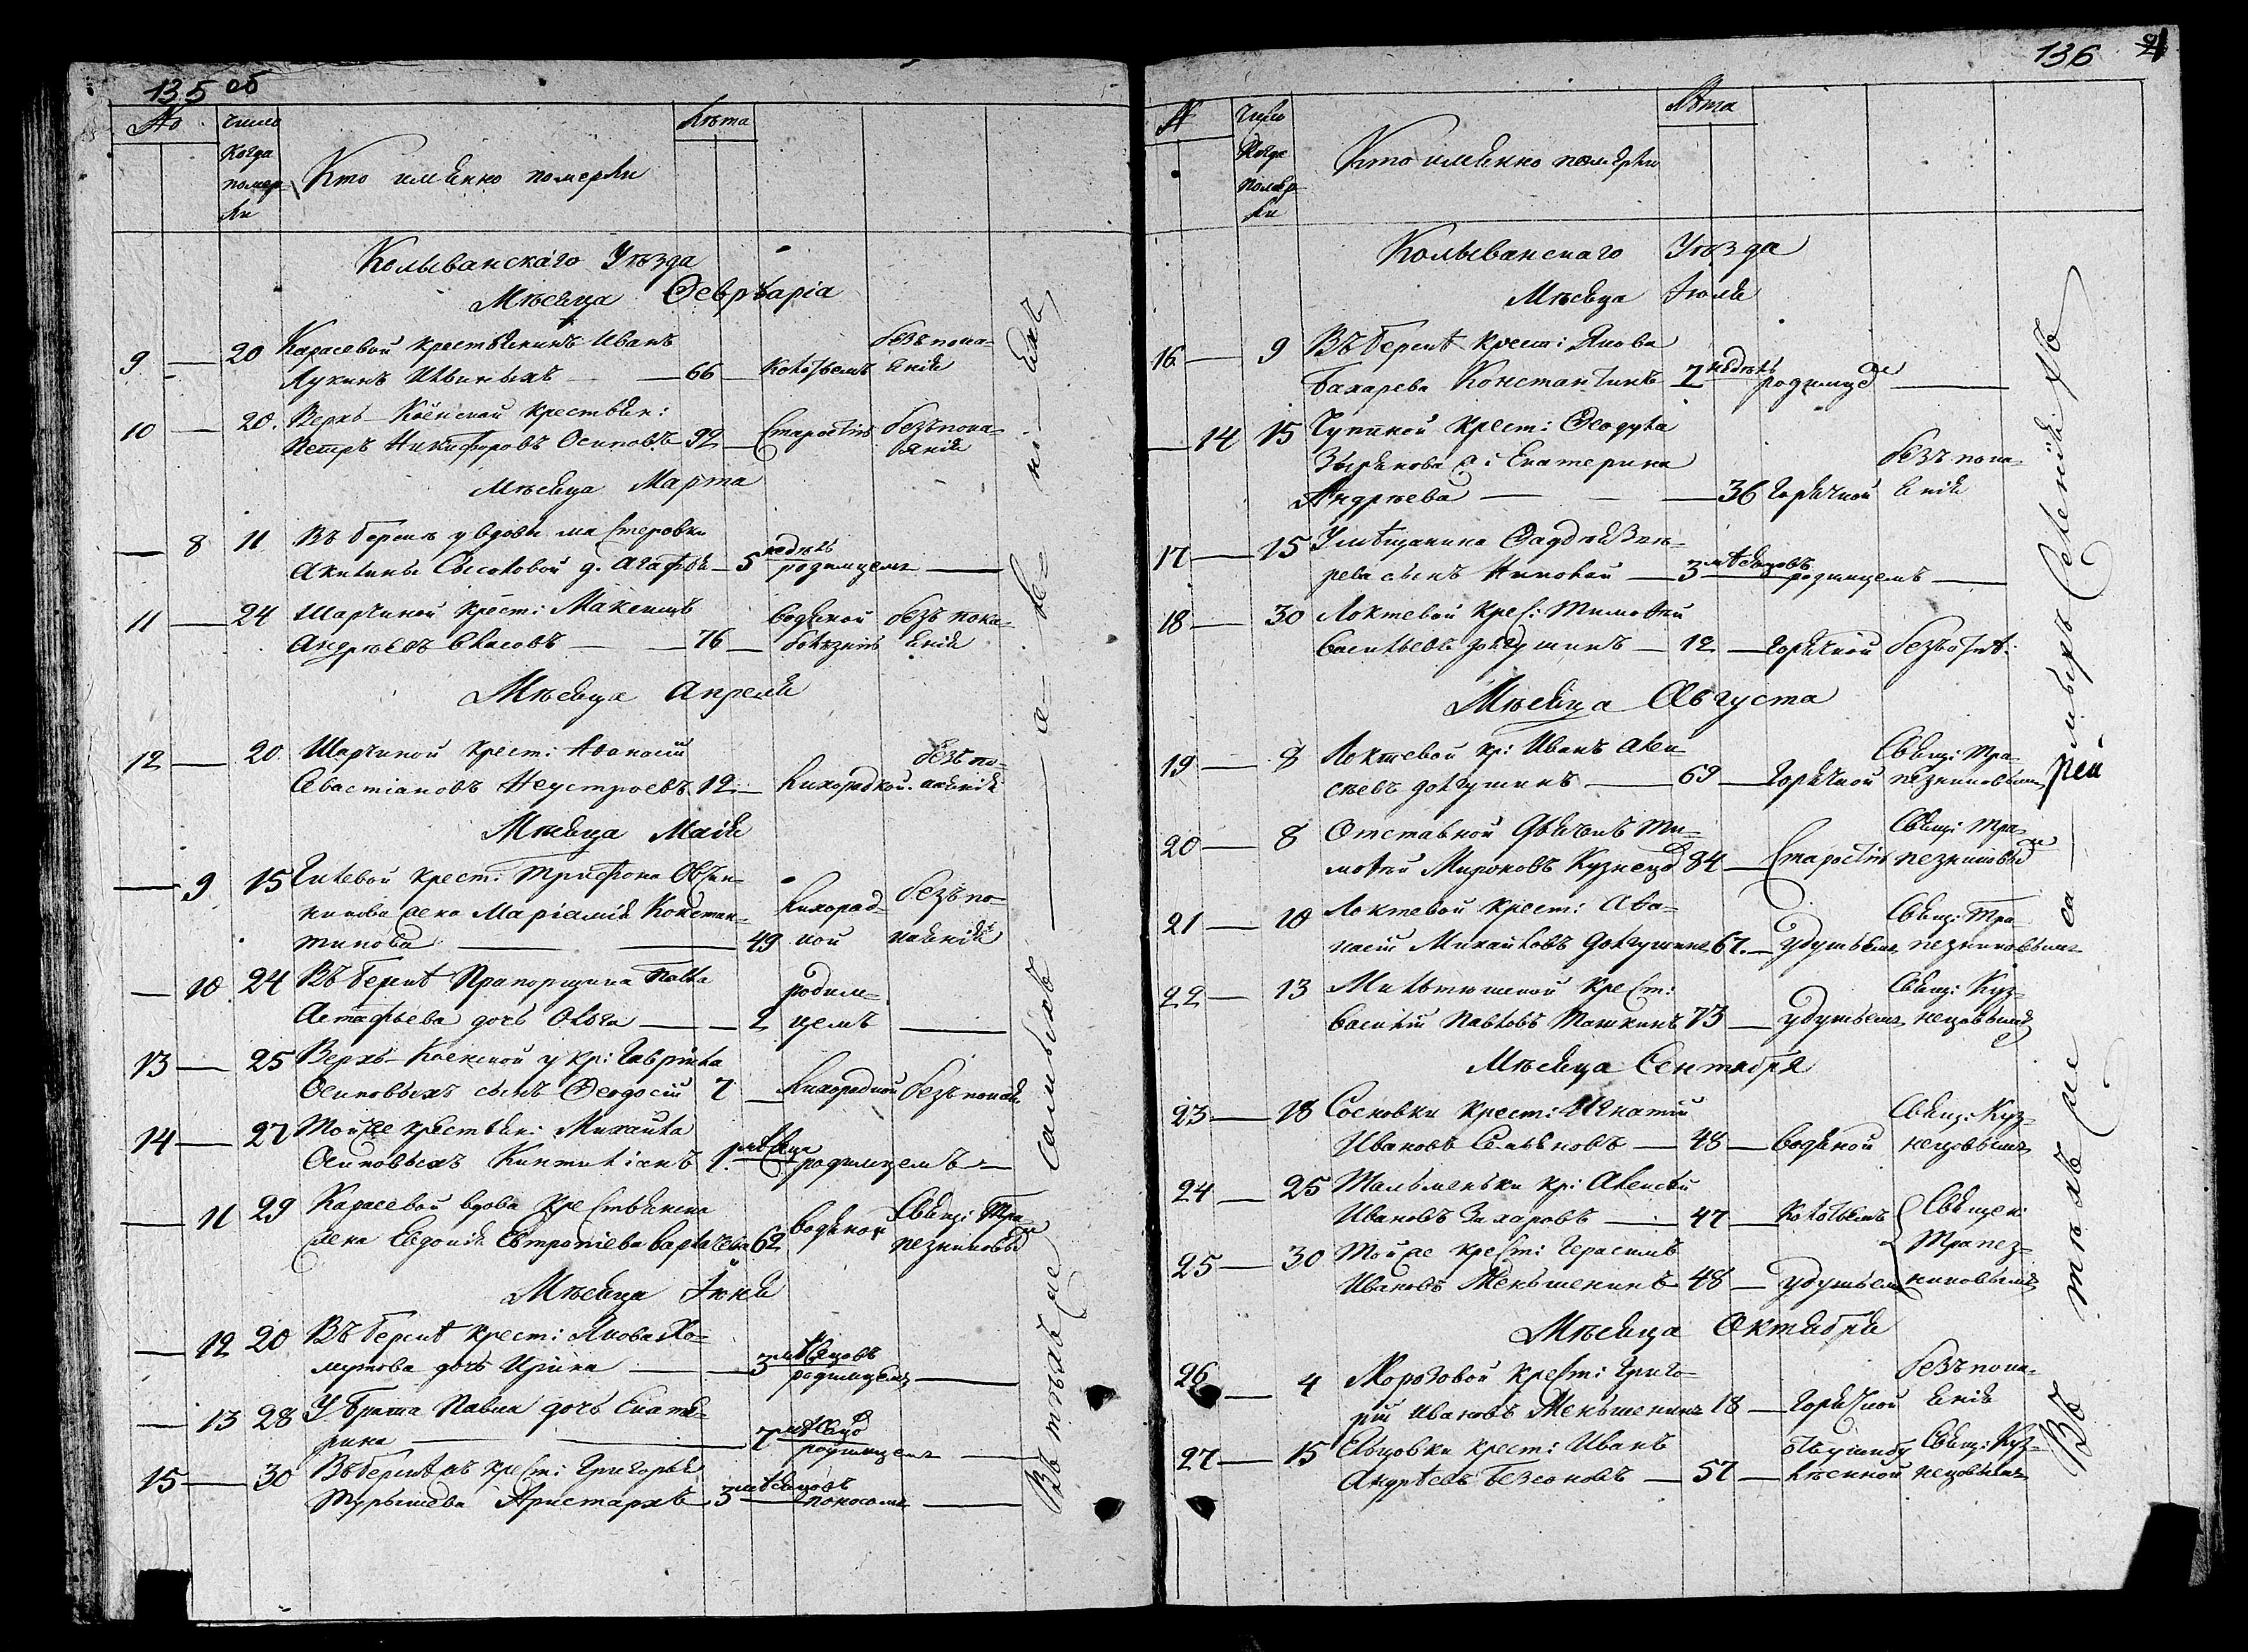 135 об
№
число
Когда
помер-
ли
Кто имянно померли
Лѣта
Колыванскаго Уѣзда
Мѣсяца Февръаріа
9 — 20 Карасевой крестьянинъ Иванъ
Лукинъ — 66 — колотьемъ безъ пока-
янія
10 — 20. Верхъ-Коёнской крестьян:
Петръ Никифоровъ Осиповъ 92 — Старостію безъ пока-
янія
Мѣсяца Марта
— 8 11 Въ берскѣ у вдовы
Акилины Соколовой д. Агафья — 5 недѣль родимцемъ —
11 — 24 Шарчиной крест: Максимъ
Андрѣевъ Власовъ — 76 — водяной болѣзнію безъ пока-
янія
Мѣсяца Апреля
12 — 20. Шарчиной крест: Аѳанасій
Севастіановъ Неустроевъ 12. — Лихорадкой. безъ по-
каянія
Мѣсяца Маія
— 9 15 Гилевой крест: Трифона Овчин-
никова жена Маріамія Констан-
тинова — 49 Лихорад-
кой безъ по-
каянія
— 10 24 Въ берскѣ Прапорщика Павла
Астафьева дочь Ольга — 2 родим-
цемъ —
13 — 25 Верхъ-Коенской у кр: Гаврила
Осиповыхъ сынъ Феодосій 7 — Лихорадкой безъ покая
14 — 27 Той же крестьян: Михаила
Осиповыхъ Кинтиліанъ 1. мѣсяца родимцемъ —
— 11 29 Карасевой вдова крестьянска
жена Евдокія Евтропіева 62 водяной Свящ: Тра-
пезниковы
Мѣсяца Іюня
— 12 20 Въ берскѣ крест: Якова Хо-
мутова дочь Ирина — 3 мѣсяцовъ родимцемъ —
— 13 28 У брата Павла дочь Екате-
рина — 7 родимцемъ —
15 — 30 Въ берскѣ крест: Григорья
Турышева Аристархъ 3 мѣсяцовъ поносомъ —
Въ тѣхъ же самыхъ
136
№
Число
Когда
помер-
ли
Кто имянно померли
Лѣта
Колыванскаго Уѣзда
Мѣсяца Іюля
16 — 9 Въ берскѣ крест: Якова
Бахарева Константинъ 7 недѣль родимце —
— 14 15 Чупиной крест: Феодула
Зырянова ж: Екатерина
Андрѣева — 36 горячкой безъ пока-
янія
17 — 15 У мѣщанина Фадѣя Звѣ-
рева сынъ Николай — 3 мѣсяцовъ родимцемъ —
18 — 30 Локтевой крес: Тимоѳей
Васильевъ Долгушинъ — 12 — горячкой
Мѣсяца Августа
19 — 8 Локтевой кр: Иванъ Алек-
сѣевъ Долгушинъ — 69 — горячкой Свящ: Тра-
пезниковымъ
20 — 8 Отставной Дьячекъ Ти-
моѳей Мироновъ Кузнецо 84 — Старостію Свящ: Тра-
пезниковы
21 — 10 Локтевой крест: Аѳа-
насій Михайловъ Долгушинъ 67. — удушьемъ Свящ: Тра-
пезниковымъ
22 — 13 Мильтюшской крест:
Василій Павловъ Ташкинъ 73 — удушьемъ Свящ: Куз-
нецовымъ
Мѣсяца Сентября
23 — 18 Сосновки крест: Игнатій
Ивановъ Семьяновъ — 48 — водяной Свящ: Куз-
нецовымъ
24 — 25 Тальменьки кр: Алексѣй
Ивановъ Захаровъ — 47 — колотьемъ Священ:
25 — 30 Той же крест: Герасимъ
Ивановъ Меньшенинъ 48 — удушьем Трапез-
никовымъ
Мѣсяца Октября
26 — 4 Морозовой крест: Григо-
рій Ивановъ Меньшенинъ 18 — горячкой безъ пока-
янія
27 — 15 Ельцовки крест: Иванъ
Андрѣевъ Безсоновъ — 57 — Свящ: Куз-
нецовымъ
Въ тѣхъ же